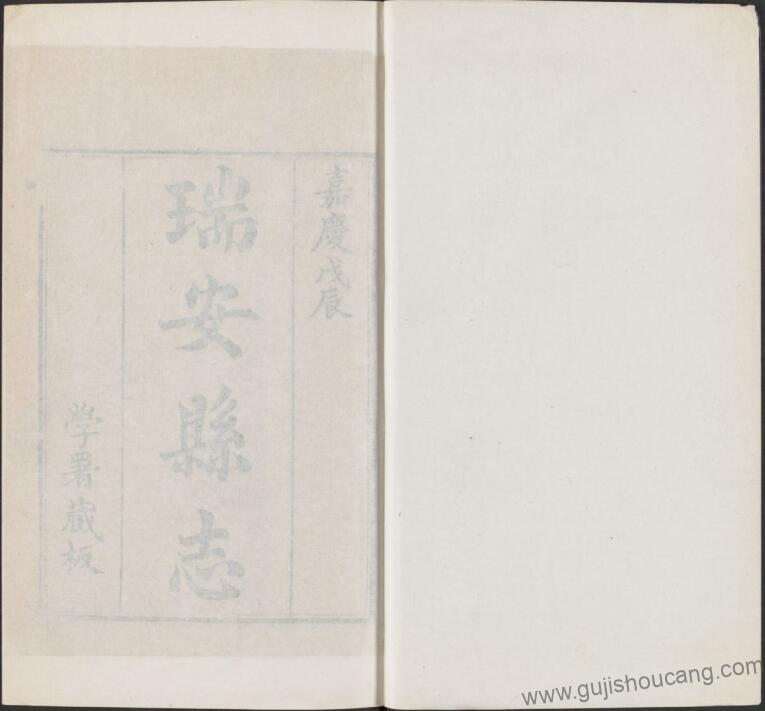 嘉慶戊辰
瑞安縣志
學署藏板
www.gujishoucang.com